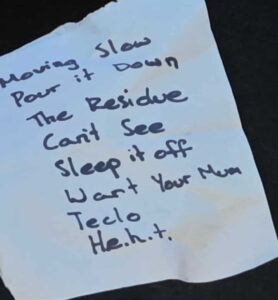 Moving Slow
Pour it Down
The Residue
Can't See
Sleep it off
Want Your Mum
Teclo
H.e.h.t.